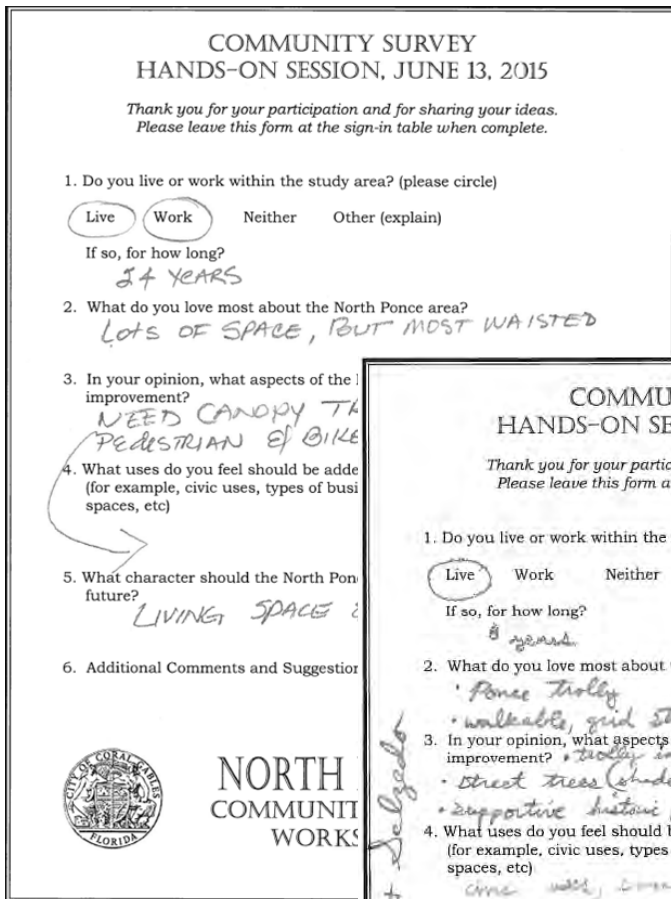 COMMUNITY SURVEY
HANDS-ON SESSION, JUNE 13, 2015
Thank you for your participation and for sharing your ideas.
Please leave this form at the sign-in table when complete.
1. Do you live or work within the study area? (please circle)
Live Work Neither Other (explain)
If so, for how long?
24 YEARS
2. What do you love most about the North Ponce area?
LOTS OF SPACE, BUT MOST WAISTED
3. In your opinion, what aspects of the
improvement?
NEED CANOPY
PEDESTRIAN & BIKE
4. What uses do you feel should be adde
(for example, civic uses, types of busi
spaces, etc)
5. What character should the North Pon
future?
LIVING SPACE
6. Additional Comments and Suggestion
CITY OF CORAL GABLES
FLORIDA
NORTH
COMMUNIT
WORKS
COMMU
HANDS-ON SE
Thank you for your partic
Please leave this form a
1. Do you live or work within the
Live Work Neither
If so, for how long?
8 years
2. What do you love most about
• Ponce trolly
• walkable, grid st
3. In your opinion, what aspects
improvement? • trolly
• street trees (shade
• supportive historic
4. What uses do you feel should b
(for example, civic uses, types
spaces, etc)
civic uses,
Salzedo